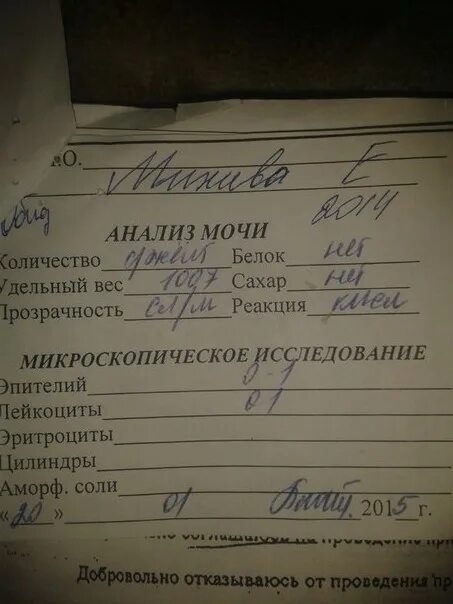 .О. Минива Е
2014
АНАЛИЗ МОЧИ
Количество с/желт Белок нет
Удельный вес 1007 Сахар нет
Прозрачность сл/м Реакция кисл
МИКРОСКОПИЧЕСКОЕ ИССЛЕДОВАНИЕ
Эпителий 0-1
Лейкоциты 0 1
Эритроциты
Цилиндры
Аморф. соли
«20» 01 2015 г.
но соглашаюсь на проведение при
Добровольно отказываюсь от проведения пр